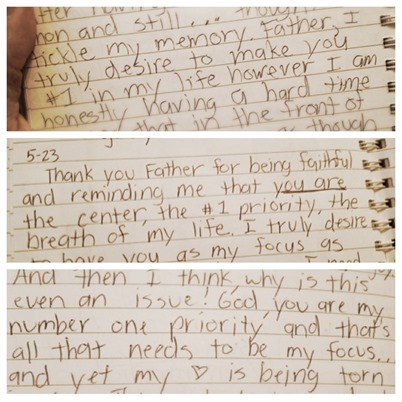 tickle my memory. Father, I
truly desire to make you
#1 in my life however I am
honestly having a hard time
that in the front of
5-23
Thank you Father for being faithful
and reminding me that you are
the center, the #1 priority, the
breath of my life. I truly desire
to have you as my focus as
And then I think, why is this
even an issue! God, you are my
number one priority and that's
all that needs to be my focus..
and yet my ♡ is being torn